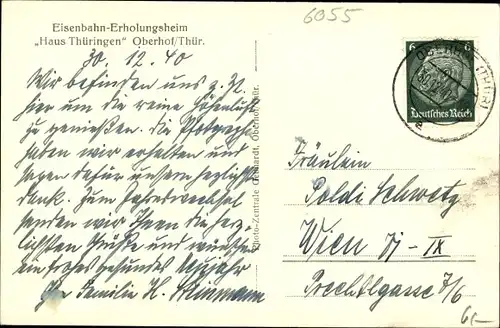 6055
Eisenbahn-Erholungsheim
„Haus Thüringen" Oberhof/Thür.
30. 12. 40
Wir befinden uns z. Zt.
hier um die reine Höhenluft
zu genießen. Die Photografie
haben wir erhalten und
sagen dafür unsern herzlichsten
Dank. Zum Jahreswechsel
senden wir Ihnen die herz-
lichsten Grüße und wünschen
ein frohes gesundes Neujahr
Familie H.
Photo-Zentrale Oberhof/Thür.
6 6
Deutsches Reich
Fräulein
Poldi Schwetz
Wien IX
Prechtlgasse 7/6
6,-